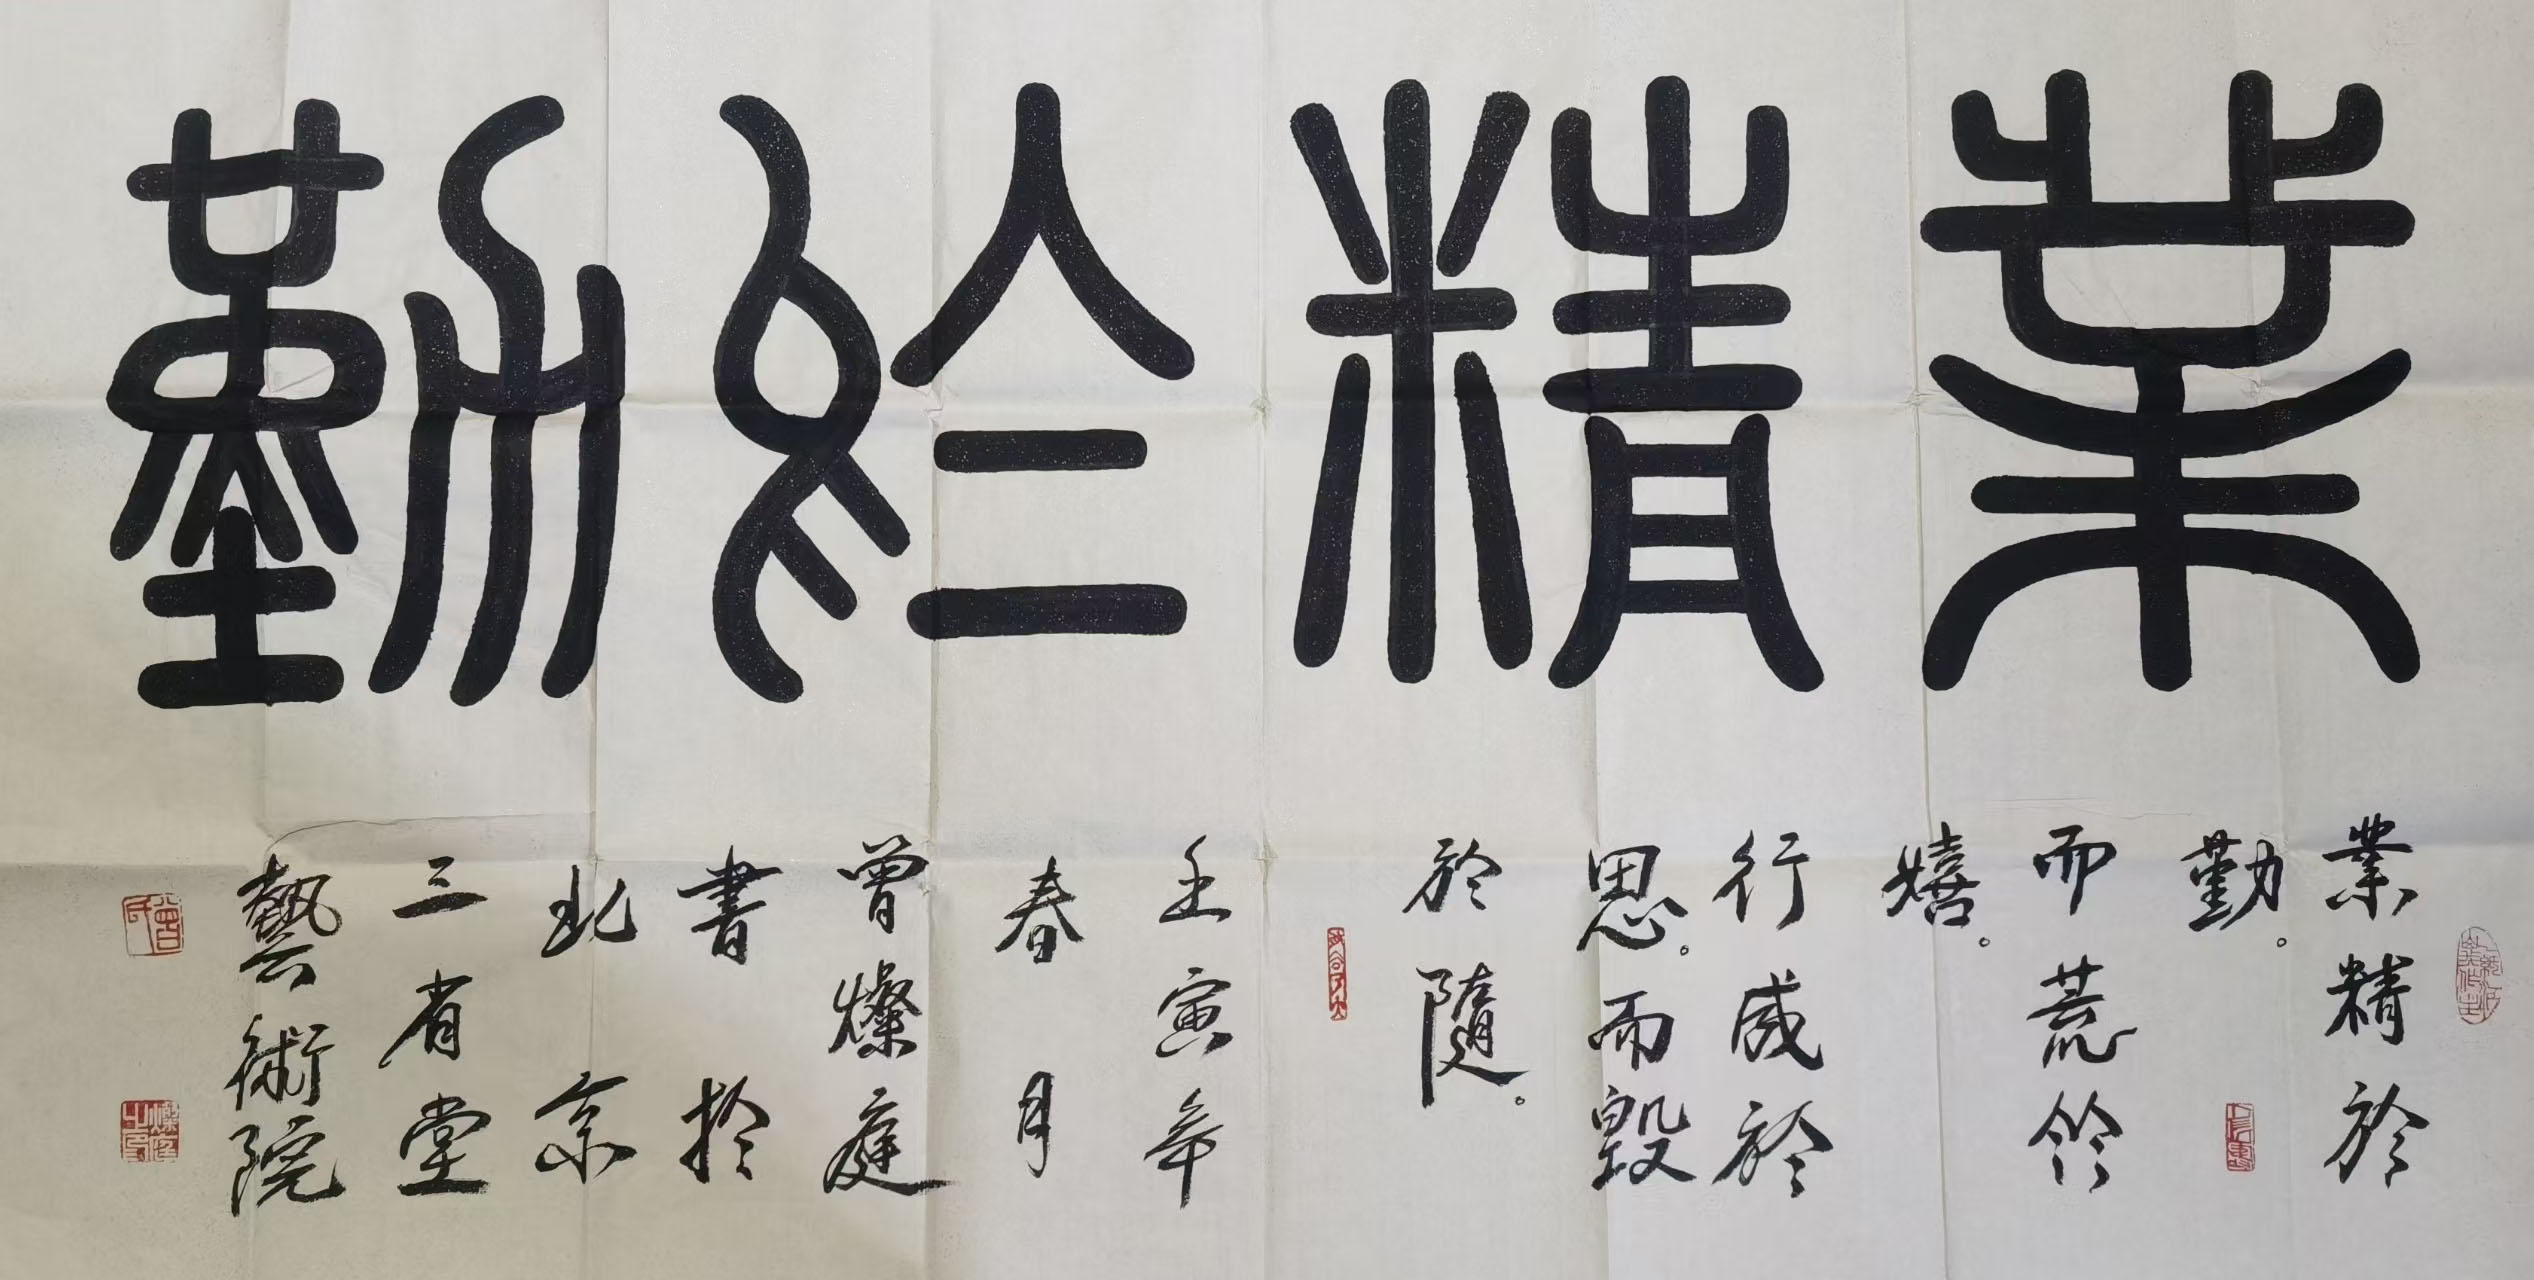 業精於勤
業精於
勤。
而荒於
嬉。
行成於
思。而毀
於隨。
壬寅年
春月
曾燦庭
書於
北京
三省堂
藝術院
曾氏